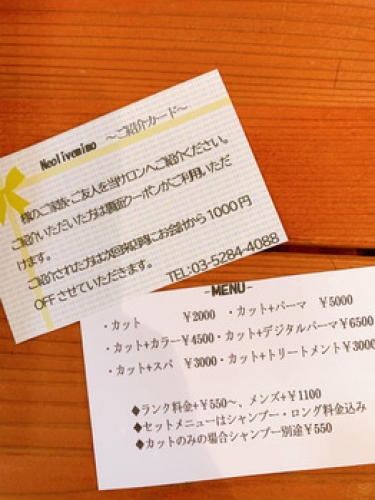 Neolivemimo ～ご紹介カード～
様のご家族・ご友人を当サロンへご紹介ください。
ご紹介いただいた方は裏面クーポンがご利用いただ
けます。
ご紹介された方は次回来店時にお会計から1000円
OFFさせていただきます。
TEL:03-5284-4088
-MENU-
・カット ¥2000 ・カット+パーマ ¥5000
・カット+カラー¥4500・カット+デジタルパーマ¥6500
・カット+スパ ¥3000・カット+トリートメント¥3000
◆ランク料金+¥550～、メンズ+¥1100
◆セットメニューはシャンプー・ロング料金込み
◆カットのみの場合シャンプー別途¥550